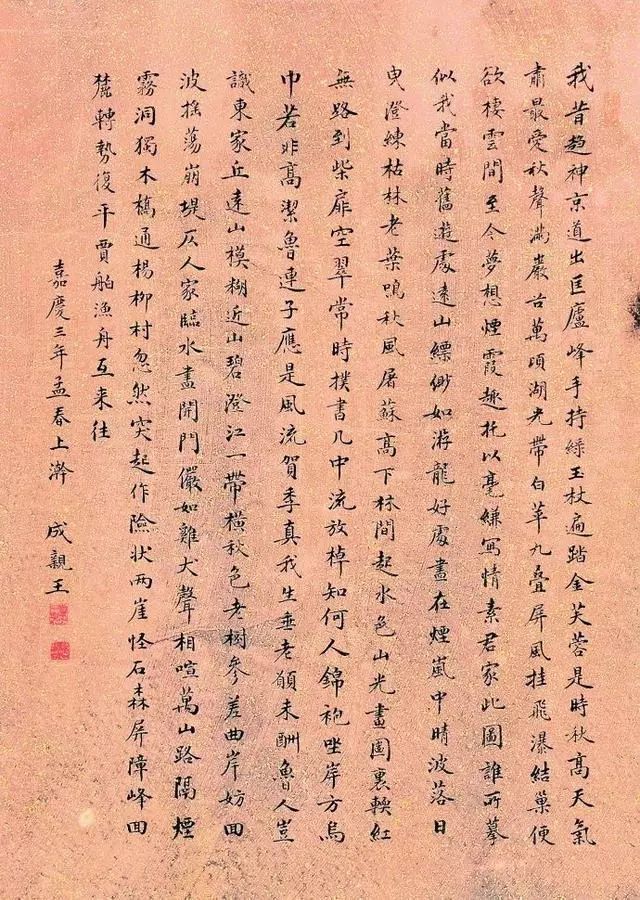 我昔趨神京道出匡廬峰手持綠玉杖遍踏金芙蓉是時秋高天氣
肅最愛秋聲滿巖谷萬頃湖光帶白苹九疊屏風挂飛瀑結巢便
欲棲雲間至今夢想煙霞趣托以毫縑寫情素君家此圖誰所摹
似我當時舊遊處遠山縹緲如游龍好處盡在煙嵐中晴波落日
曳澄練枯林老葉鳴秋風屠蘇高下林間起水色山光畫圖裏輭紅
無路到柴扉空翠常時撲書几中流放棹知何人錦袍坐岸方烏
巾若非高潔魯連子應是風流賀季真我生垂老願未酬魯人豈
識東家丘遠山模糊近山碧澄江一帶橫秋色老樹參差曲岸妨回
波搖蕩崩堤仄人家臨水盡開門儼如雞犬聲相喧萬山路隔煙
霧洞獨木橋通楊柳村忽然突起作險狀兩崖怪石森屏障峰回
麓轉勢復平賈舶漁舟互来往
嘉慶三年孟春上澣 成親王